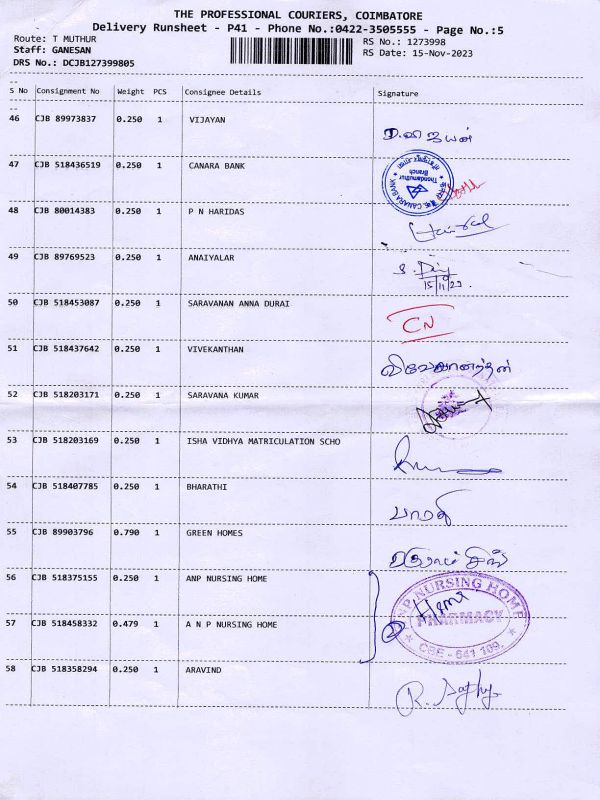 THE PROFESSIONAL COURIERS, COIMBATORE
Delivery Runsheet - P41 - Phone No.:0422-3505555 - Page No.:5
Route: T MUTHUR
RS No.: 1273998
Staff: GANESAN
RS Date: 15-Nov-2023
DRS No.: DCJB127399805
S No Consignment No Weight PCS Consignee Details Signature
46 CJB 89973837 0.250 1 VIJAYAN
47 CJB 518436519 0.250 1 CANARA BANK
CANARA BANK
Thondamuthur
Branch
48 CJB 80014383 0.250 1 P N HARIDAS
49 CJB 89769523 0.250 1 ANAIYALAR
15/11/23
50 CJB 518453087 0.250 1 SARAVANAN ANNA DURAI
CN
51 CJB 518437642 0.250 1 VIVEKANTHAN
விவேகானந்தன்
52 CJB 518203171 0.250 1 SARAVANA KUMAR
53 CJB 518203169 0.250 1 ISHA VIDHYA MATRICULATION SCHO
54 CJB 518407785 0.250 1 BHARATHI
பாரதி
55 CJB 89903796 0.790 1 GREEN HOMES
56 CJB 518375155 0.250 1 ANP NURSING HOME
NP NURSING HOME
Hema
PHARMACY
CBE - 641 109.
57 CJB 518458332 0.479 1 A N P NURSING HOME
2
58 CJB 518358294 0.250 1 ARAVIND
R. Sathy